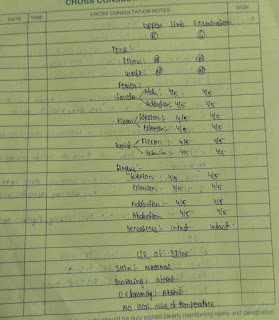 CROSS CONSULTATION NOTES
DATE TIME CROSS CONSULTATION NOTES SIGN
Upper limb Examination
(R) (L)
Tone:
Elbow: (N) (N)
Wrist: (N) (N)
Power:
Shoulder Abd. : 4/5 4/5
Adduction : 4/5 4/5
Elbow Flexion : 4/5 4/5
Extension : 4/5 4/5
Wrist Flexion : 4/5 4/5
Extension : 4/5 4/5
Fingers
Flexion : 4/5 4/5
Extension : 4/5 4/5
Adduction : 4/5 4/5
Abduction : 4/5 4/5
Sensations : intact intact
L/E OF SPINE
Skin : normal
Swelling : absent
Deformity : Absent
No local raise of temperature
be duly signed clearly mentioning name and designation